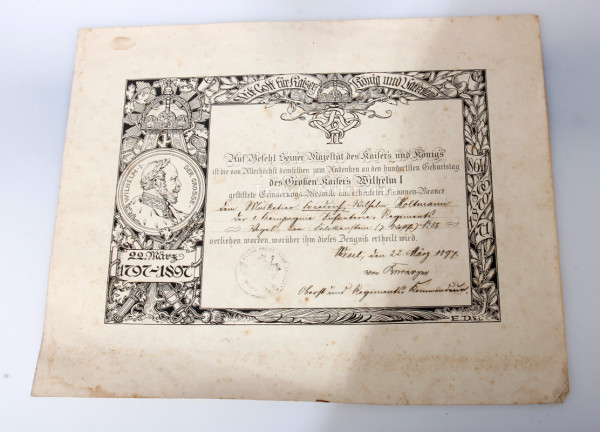 Mit Gott für Kaiser, König und Vaterland
Auf Befehl Seiner Majestät des Kaisers und Königs
ist die von Allerhöchst demselben zum Andenken an den hundertsten Geburtstag
des Großen Kaisers Wilhelm I
gestiftete Erinnerungs-Medaille aus
dem Musketier Friedrich Wilhelm Holtmann
der Compagnie Infanterie-Regiments
Vogel von Falckenstein (7. Westf.) № 56
verliehen worden, worüber ihm dieses Zeugnis ertheilt wird.
Wesel, den 22 März 1897.
von
Oberst und Regiments-Kommandeur
WILHELM DER GROSSE
22. März
1797–1897
1864